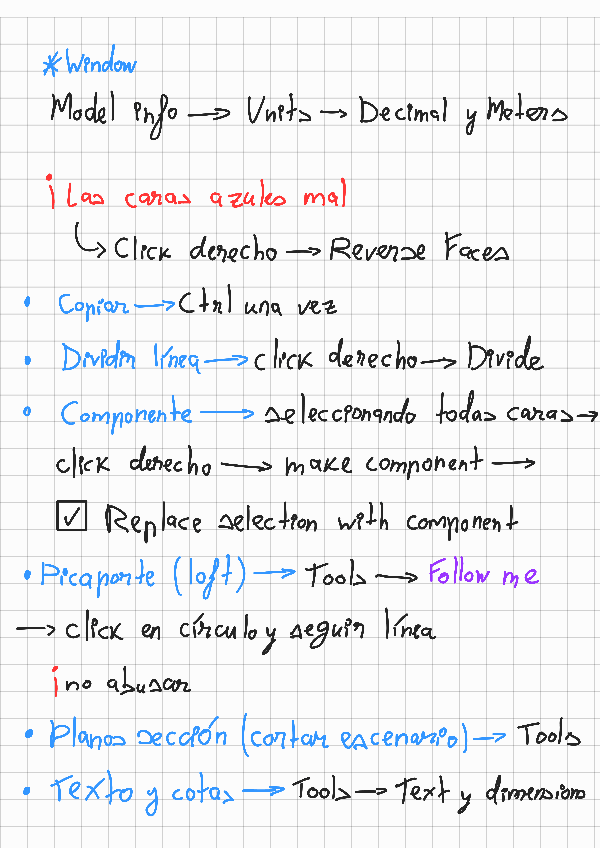 *Window
Model info → Units → Decimal y Meters
¡Las caras azules mal
↳ Click derecho → Reverse Faces
• Copiar → Ctrl una vez
• Dividir línea → click derecho → Divide
• Componente → seleccionando todas caras →
click derecho → make component →
☑ Replace selection with component
• Picaporte (loft) → Tools → Follow me
→ click en círculo y seguir línea
¡no abusar
• Planos sección (cortar escenario) → Tools
• Texto y cotas → Tools → Text y dimensions